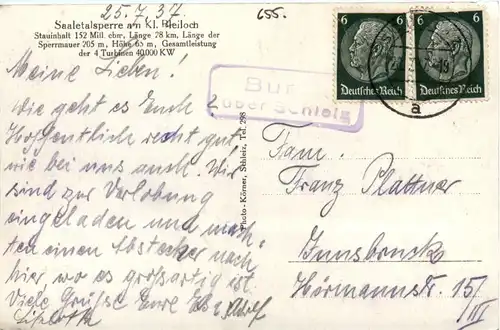 25.7.37.
655.
Saaletalsperre am Kl. Bleiloch
Stauinhalt 152 Mill. cbr, Länge 28 km, Länge der
Sperrmauer 205 m, Höhe 65 m, Gesamtleistung
der 4 Turbinen 40.000 KW
Meine Lieben!
Wie geht es Euch?
Hoffentlich recht gut,
wie bei uns auch. Wir
sind zur Verlobung
eingeladen und mach-
ten einen Abstecher nach
hier, wo es großartig ist.
Viele Grüße Eure Adolf
Liselotte
Photo-Körner, Schleiz, Tel. 298
Bur
über Schleiz
6 6
Deutsches Reich Deutsches Reich
a
Fam.
Franz Plattner
Innsbruck
Hörmannstr. 15/
III